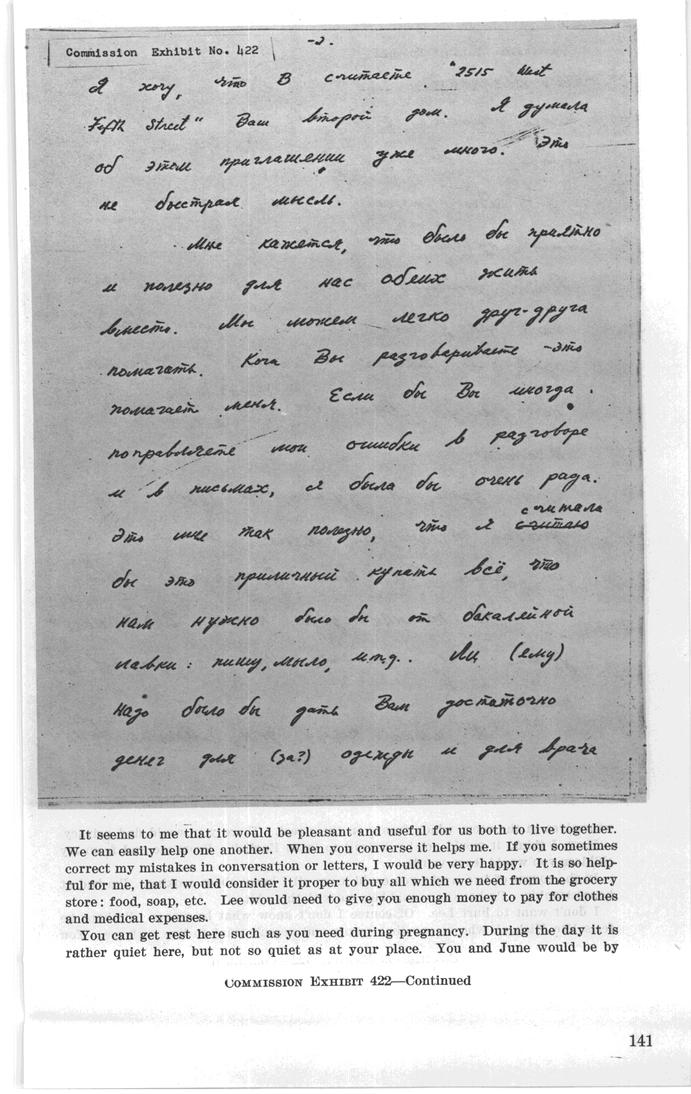 Commission Exhibit No. 422
-2.
Я хочу, что В считаете "2515 West
Fifth Street" Ваш второй дом. Я думала
об этом приглашении уже много. Это
не быстрая мысль.
Мне кажется, что было бы приятно
и полезно для нас обеих жить
вместо. Мы можем легко друг-друга
помагать. Кога Вы разговариваете - это
помагает меня. Если бы Вы иногда
поправляете мои ошибки в разговоре
и в письмах, я была бы очень рада.
считала
Это мне так полезно, что я считаю
бы это приличный купать всё, что
нам нужно было бы от бакалейной
лавки: пищу, мыло, и.т.д.. Ли (ему)
надо было бы дать Вам достаточно
денег для (за?) одежды и для врача
It seems to me that it would be pleasant and useful for us both to live together.
We can easily help one another. When you converse it helps me. If you sometimes
correct my mistakes in conversation or letters, I would be very happy. It is so help-
ful for me, that I would consider it proper to buy all which we need from the grocery
store: food, soap, etc. Lee would need to give you enough money to pay for clothes
and medical expenses.
You can get rest here such as you need during pregnancy. During the day it is
rather quiet here, but not so quiet as at your place. You and June would be by
COMMISSION EXHIBIT 422—Continued
141